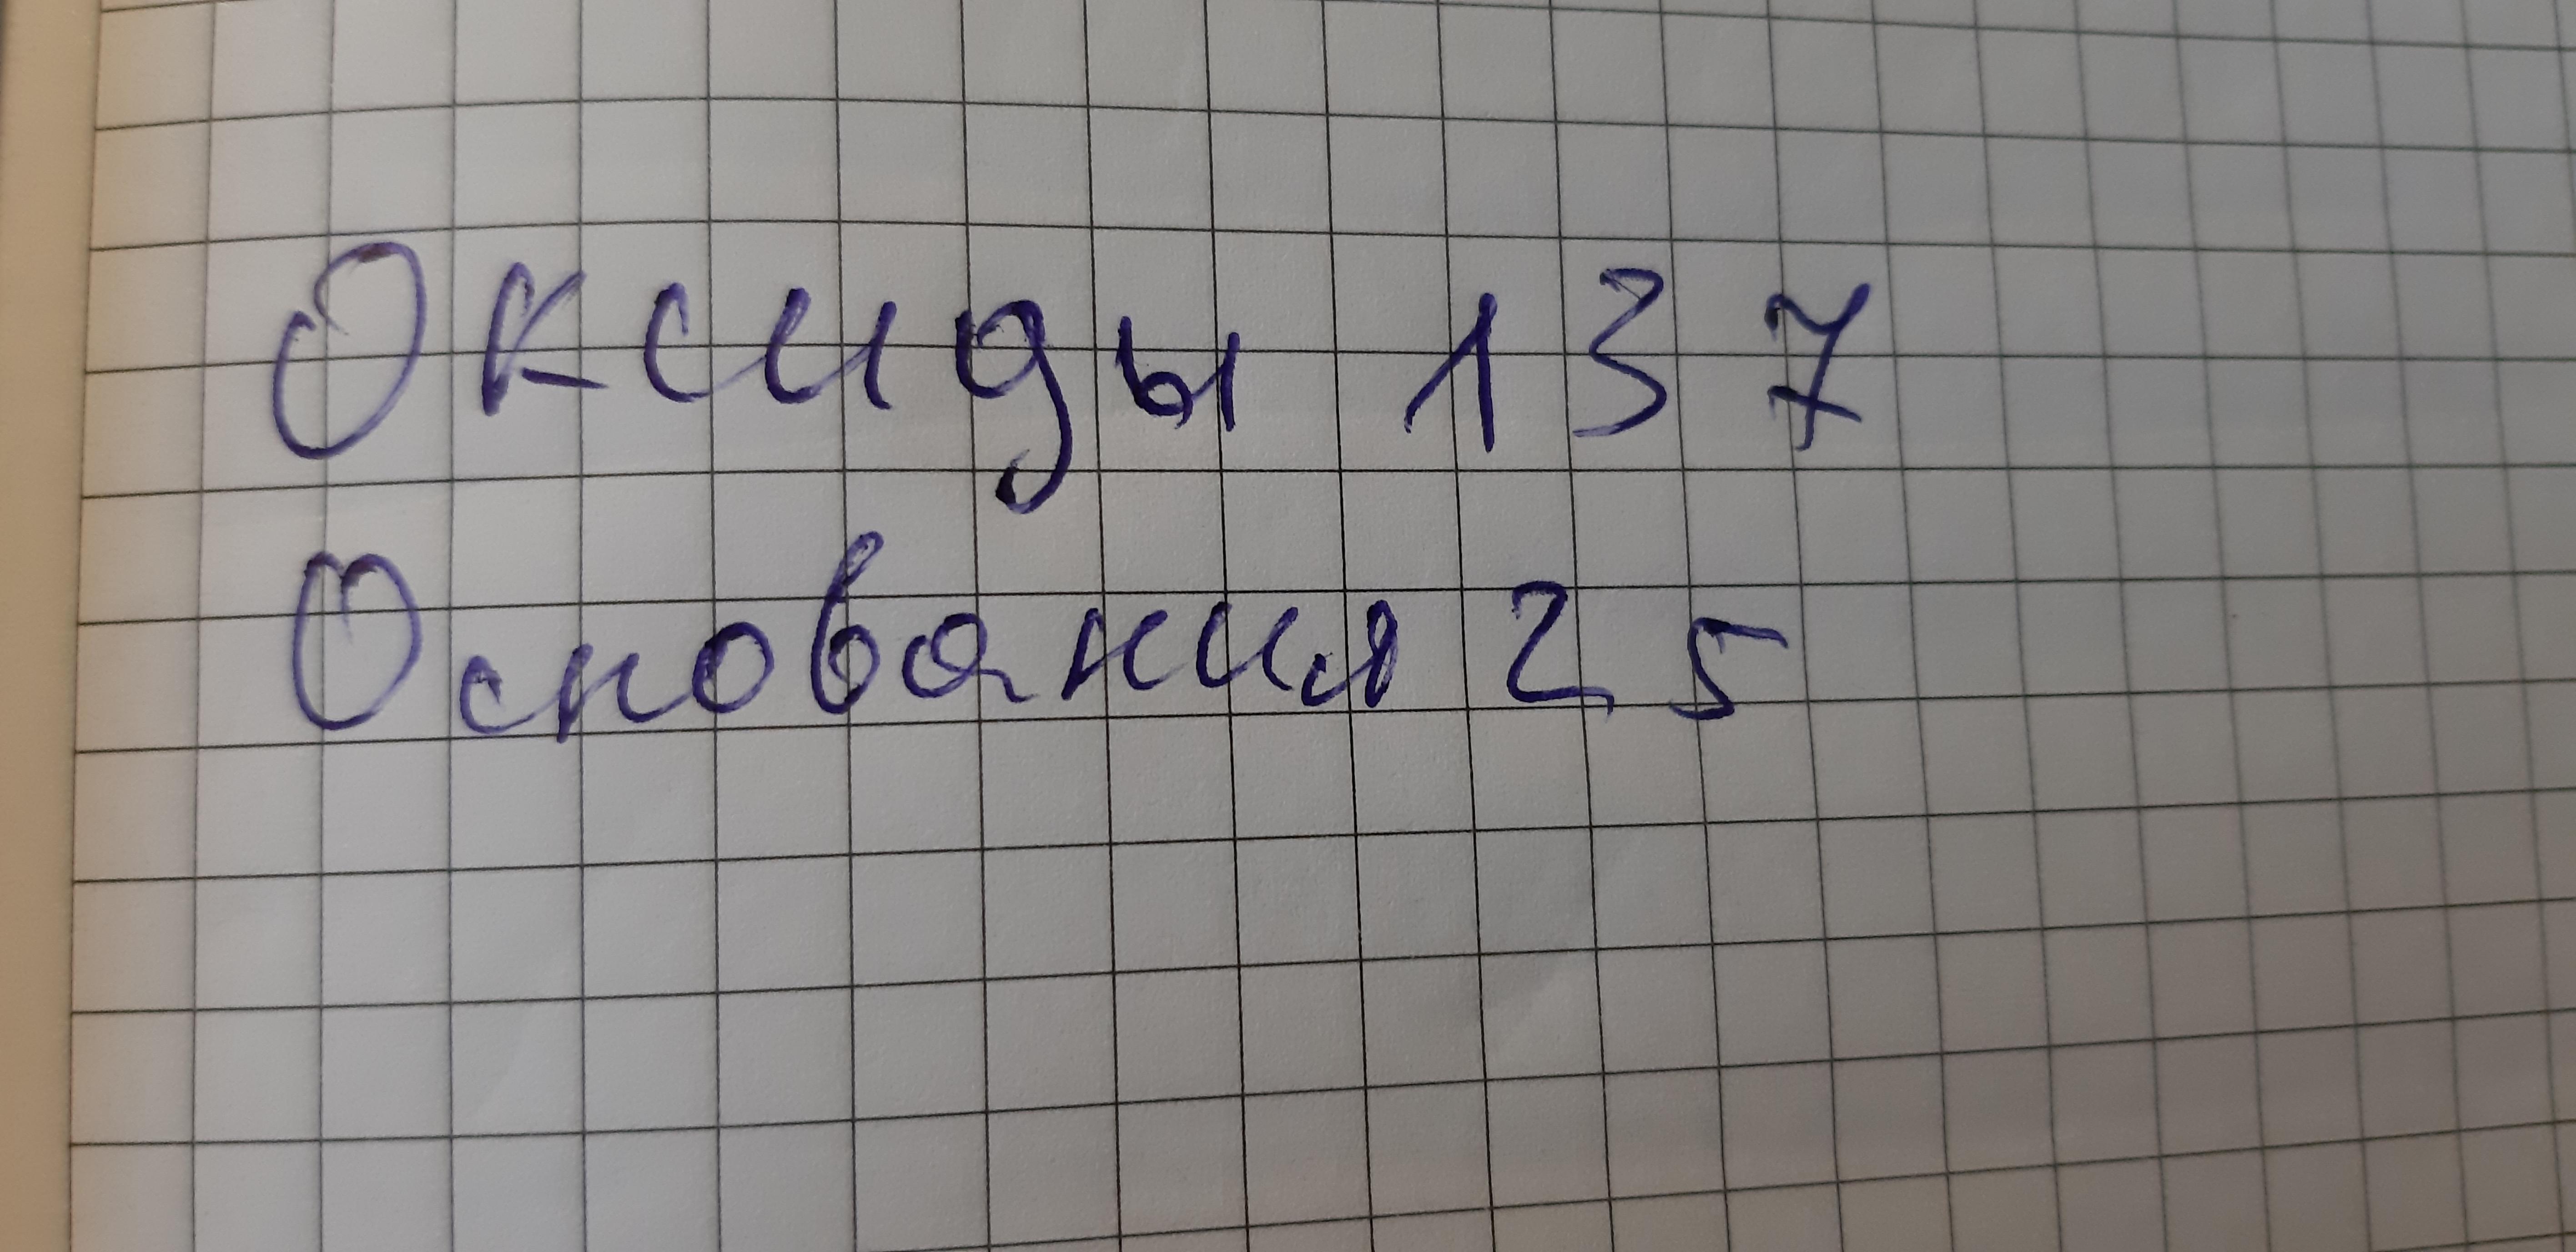 Оксиды 1 3 7
Основания 2 5